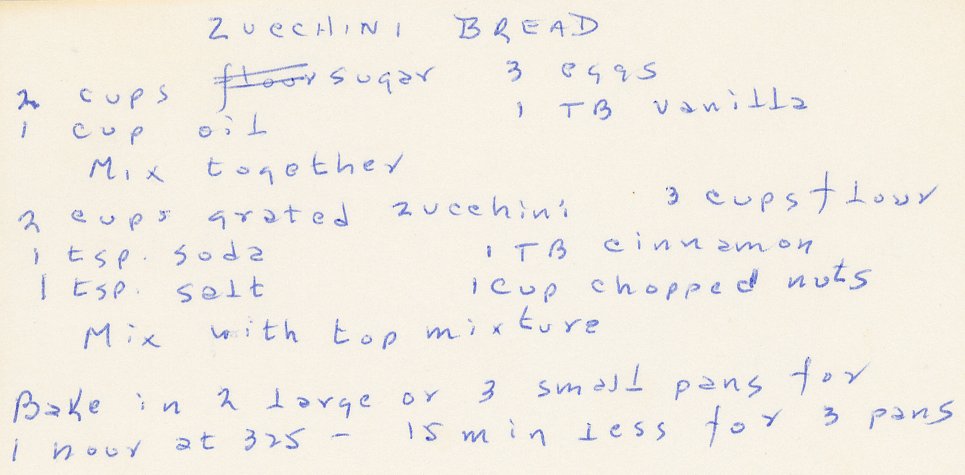 ZUCCHINI BREAD
2 cups flour sugar 3 eggs
1 cup oil 1 TB vanilla
Mix together
2 cups grated zucchini 3 cups flour
1 tsp. soda 1 TB cinnamon
1 tsp. salt 1 cup chopped nuts
Mix with top mixture
Bake in 2 large or 3 small pans for
1 hour at 325 - 15 min less for 3 pans